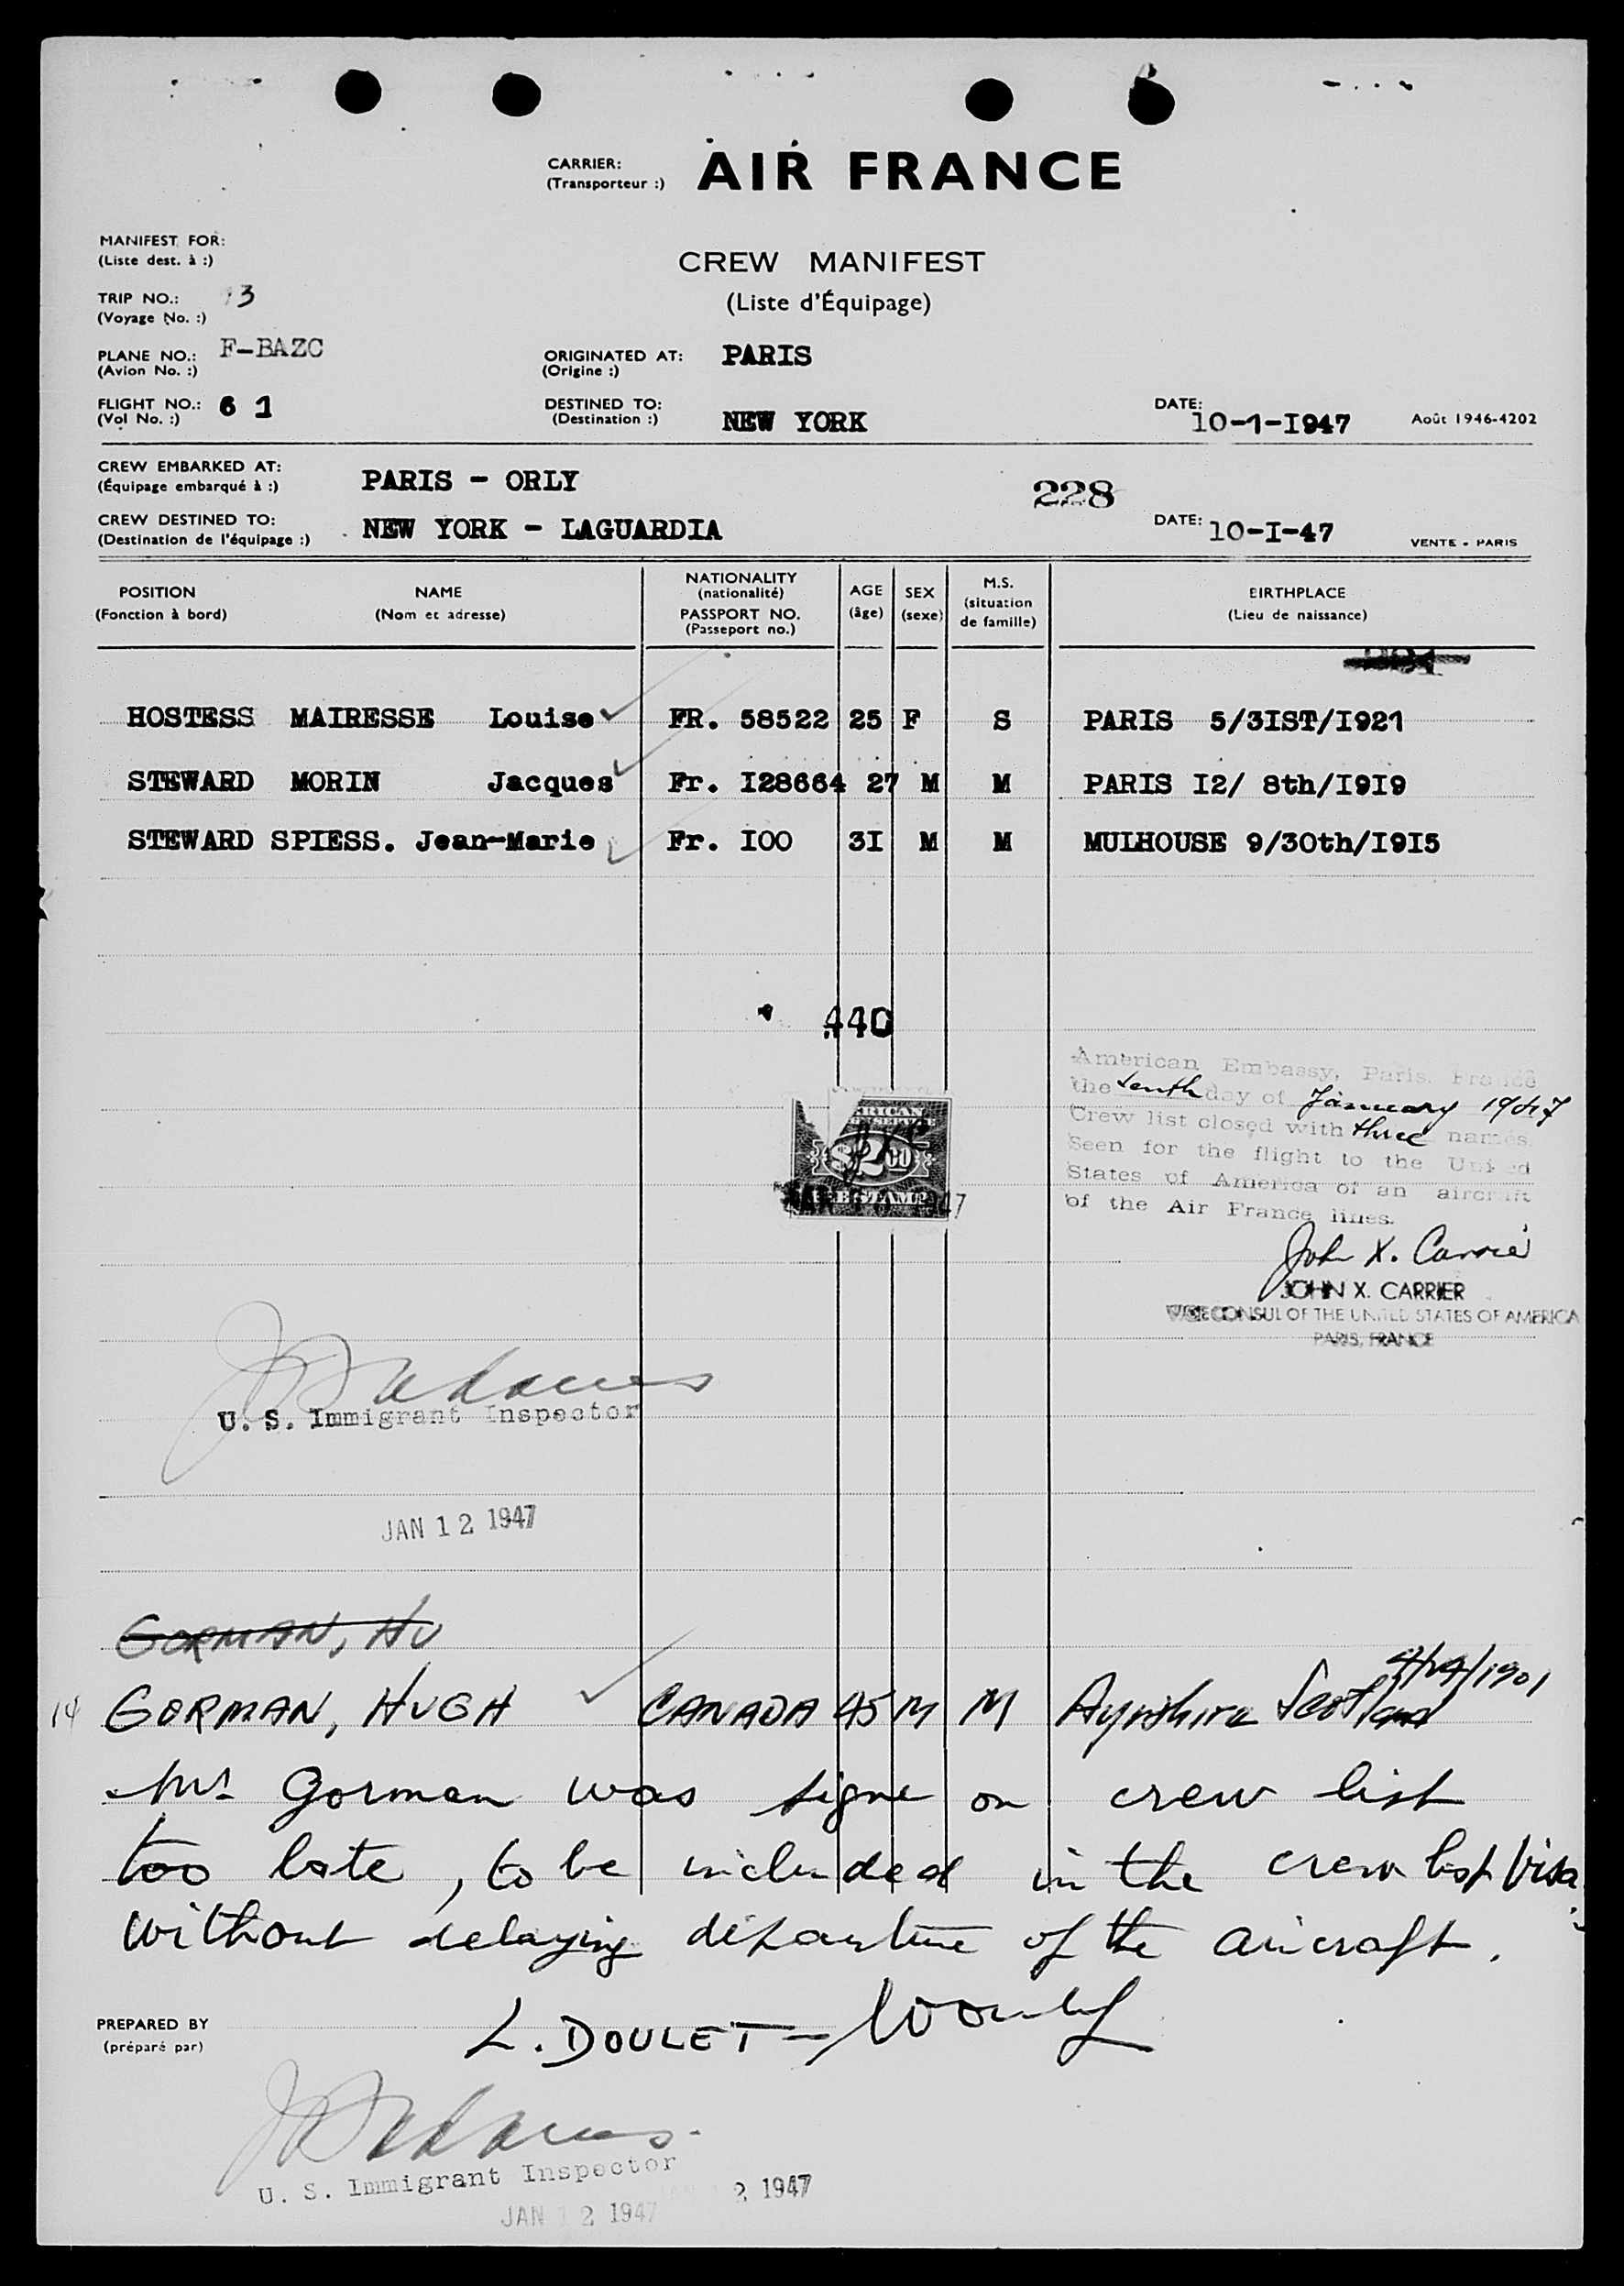 CARRIER:
(Transporteur :)
AIR FRANCE
MANIFEST FOR:
(Liste dest. à :)
CREW MANIFEST
(Liste d'Équipage)
TRIP NO.: 13
(Voyage No. :)
PLANE NO.: F-BAZC
(Avion No. :)
ORIGINATED AT: PARIS
(Origine :)
FLIGHT NO.: 6 1
(Vol No. :)
DESTINED TO: NEW YORK
(Destination :)
DATE: 10-1-I947
Août 1946-4202
CREW EMBARKED AT: PARIS - ORLY
(Équipage embarqué à :)
228
CREW DESTINED TO: NEW YORK - LAGUARDIA
(Destination de l'équipage :)
DATE: 10-I-47
VENTE - PARIS
POSITION NAME NATIONALITY AGE SEX M.S. BIRTHPLACE
(Fonction à bord) (Nom et adresse) (nationalité) (âge) (sexe) (situation de famille) (Lieu de naissance)
PASSPORT NO.
(Passeport no.)
HOSTESS MAIRESSE Louise FR. 58522 25 F S PARIS 5/3IST/I921
STEWARD MORIN Jacques Fr. I28664 27 M M PARIS I2/ 8th/I9I9
STEWARD SPIESS. Jean-Marie Fr. I00 3I M M MULHOUSE 9/30th/I9I5
440
American Embassy, Paris, France
the tenth day of January 1947
Crew list closed with three names.
Seen for the flight to the United
States of America of an aircraft
of the Air France lines.
$2.00
STAMP
John X. Carrier
JOHN X. CARRIER
VICE CONSUL OF THE UNITED STATES OF AMERICA
PARIS, FRANCE
U. S. Immigrant Inspector
JAN 12 1947
GORMAN, HU
14 GORMAN, HUGH CANADA 45 M M Ayrshire Scotland 4/14/1901
Mr Gorman was signe on crew list
too late, to be included in the crew list Visa
without delaying departure of the aircraft.
PREPARED BY
(préparé par)
L. DOULET -
U. S. Immigrant Inspector
JAN 12 1947
2 1947